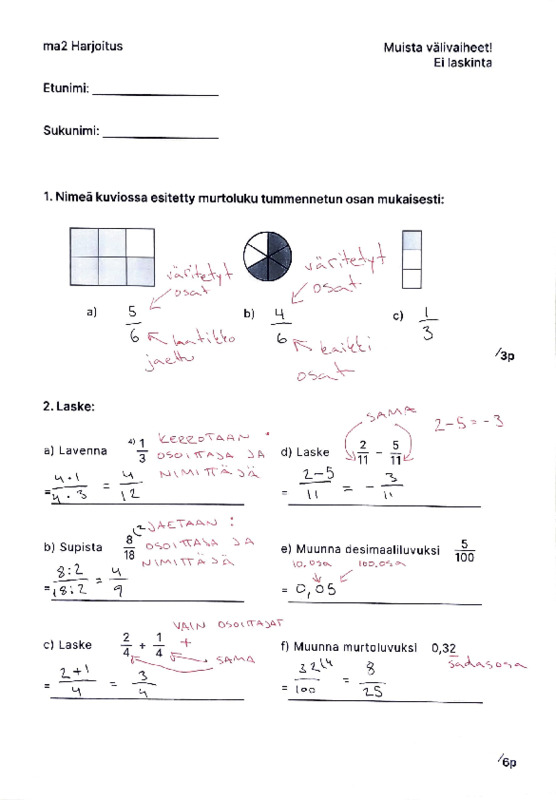 ma2 Harjoitus
Muista välivaiheet!
Ei laskinta
Etunimi: ____________
Sukunimi: ____________
1. Nimeä kuviossa esitetty murtoluku tummennetun osan mukaisesti:
väritetyt osat
väritetyt osat
a) 5/6
b) 4/6
c) 1/3
laatikko jaettu
kaikki osat
/3p
2. Laske:
SAMA
2-5=-3
a) Lavenna 4) 1/3
KERROTAAN · OSOITTAJA JA NIMITTÄJÄ
= 4·1/4·3 = 4/12
d) Laske 2/11 - 5/11
= 2-5/11 = - 3/11
b) Supista 8/18 (2
JAETAAN : OSOITTAJA JA NIMITTÄJÄ
= 8:2/18:2 = 4/9
e) Muunna desimaaliluvuksi 5/100
10.osa 100.osa
= 0,05
VAIN OSOITTAJAT +
c) Laske 2/4 + 1/4
SAMA
= 2+1/4 = 3/4
f) Muunna murtoluvuksi 0,32
sadasosa
= 32/100 (4 = 8/25
/6p